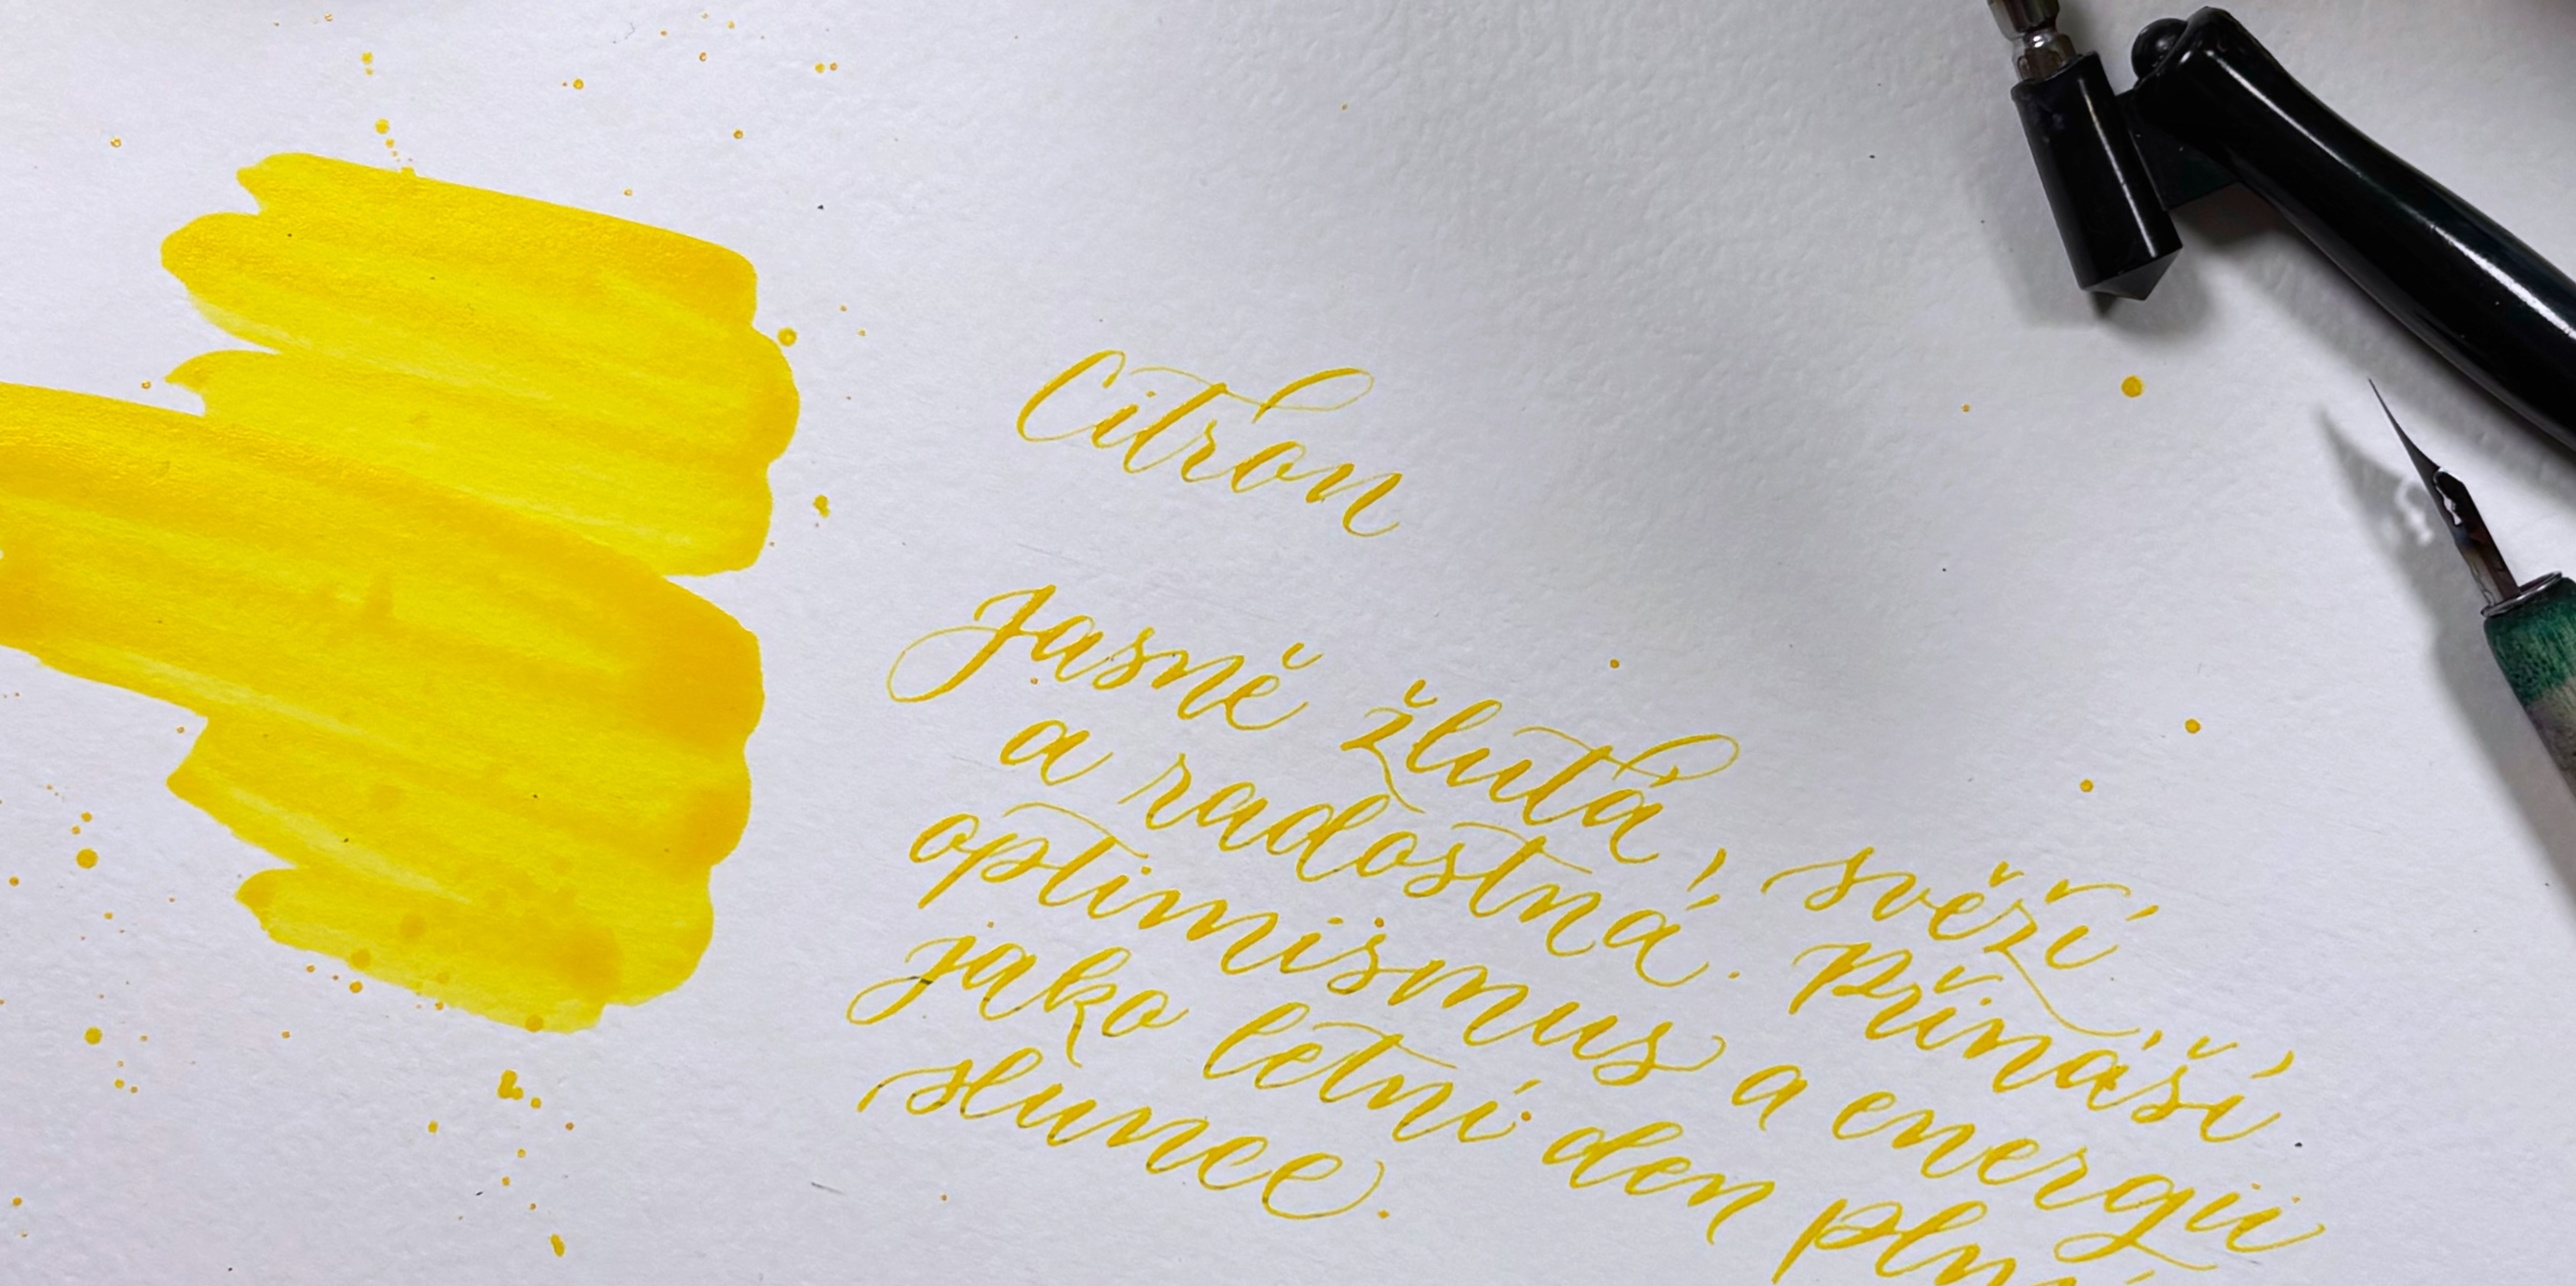 Citron
Jasně žlutá, svěží
a radostná. Přináší
optimismus a energii
jako letní den
slunce.